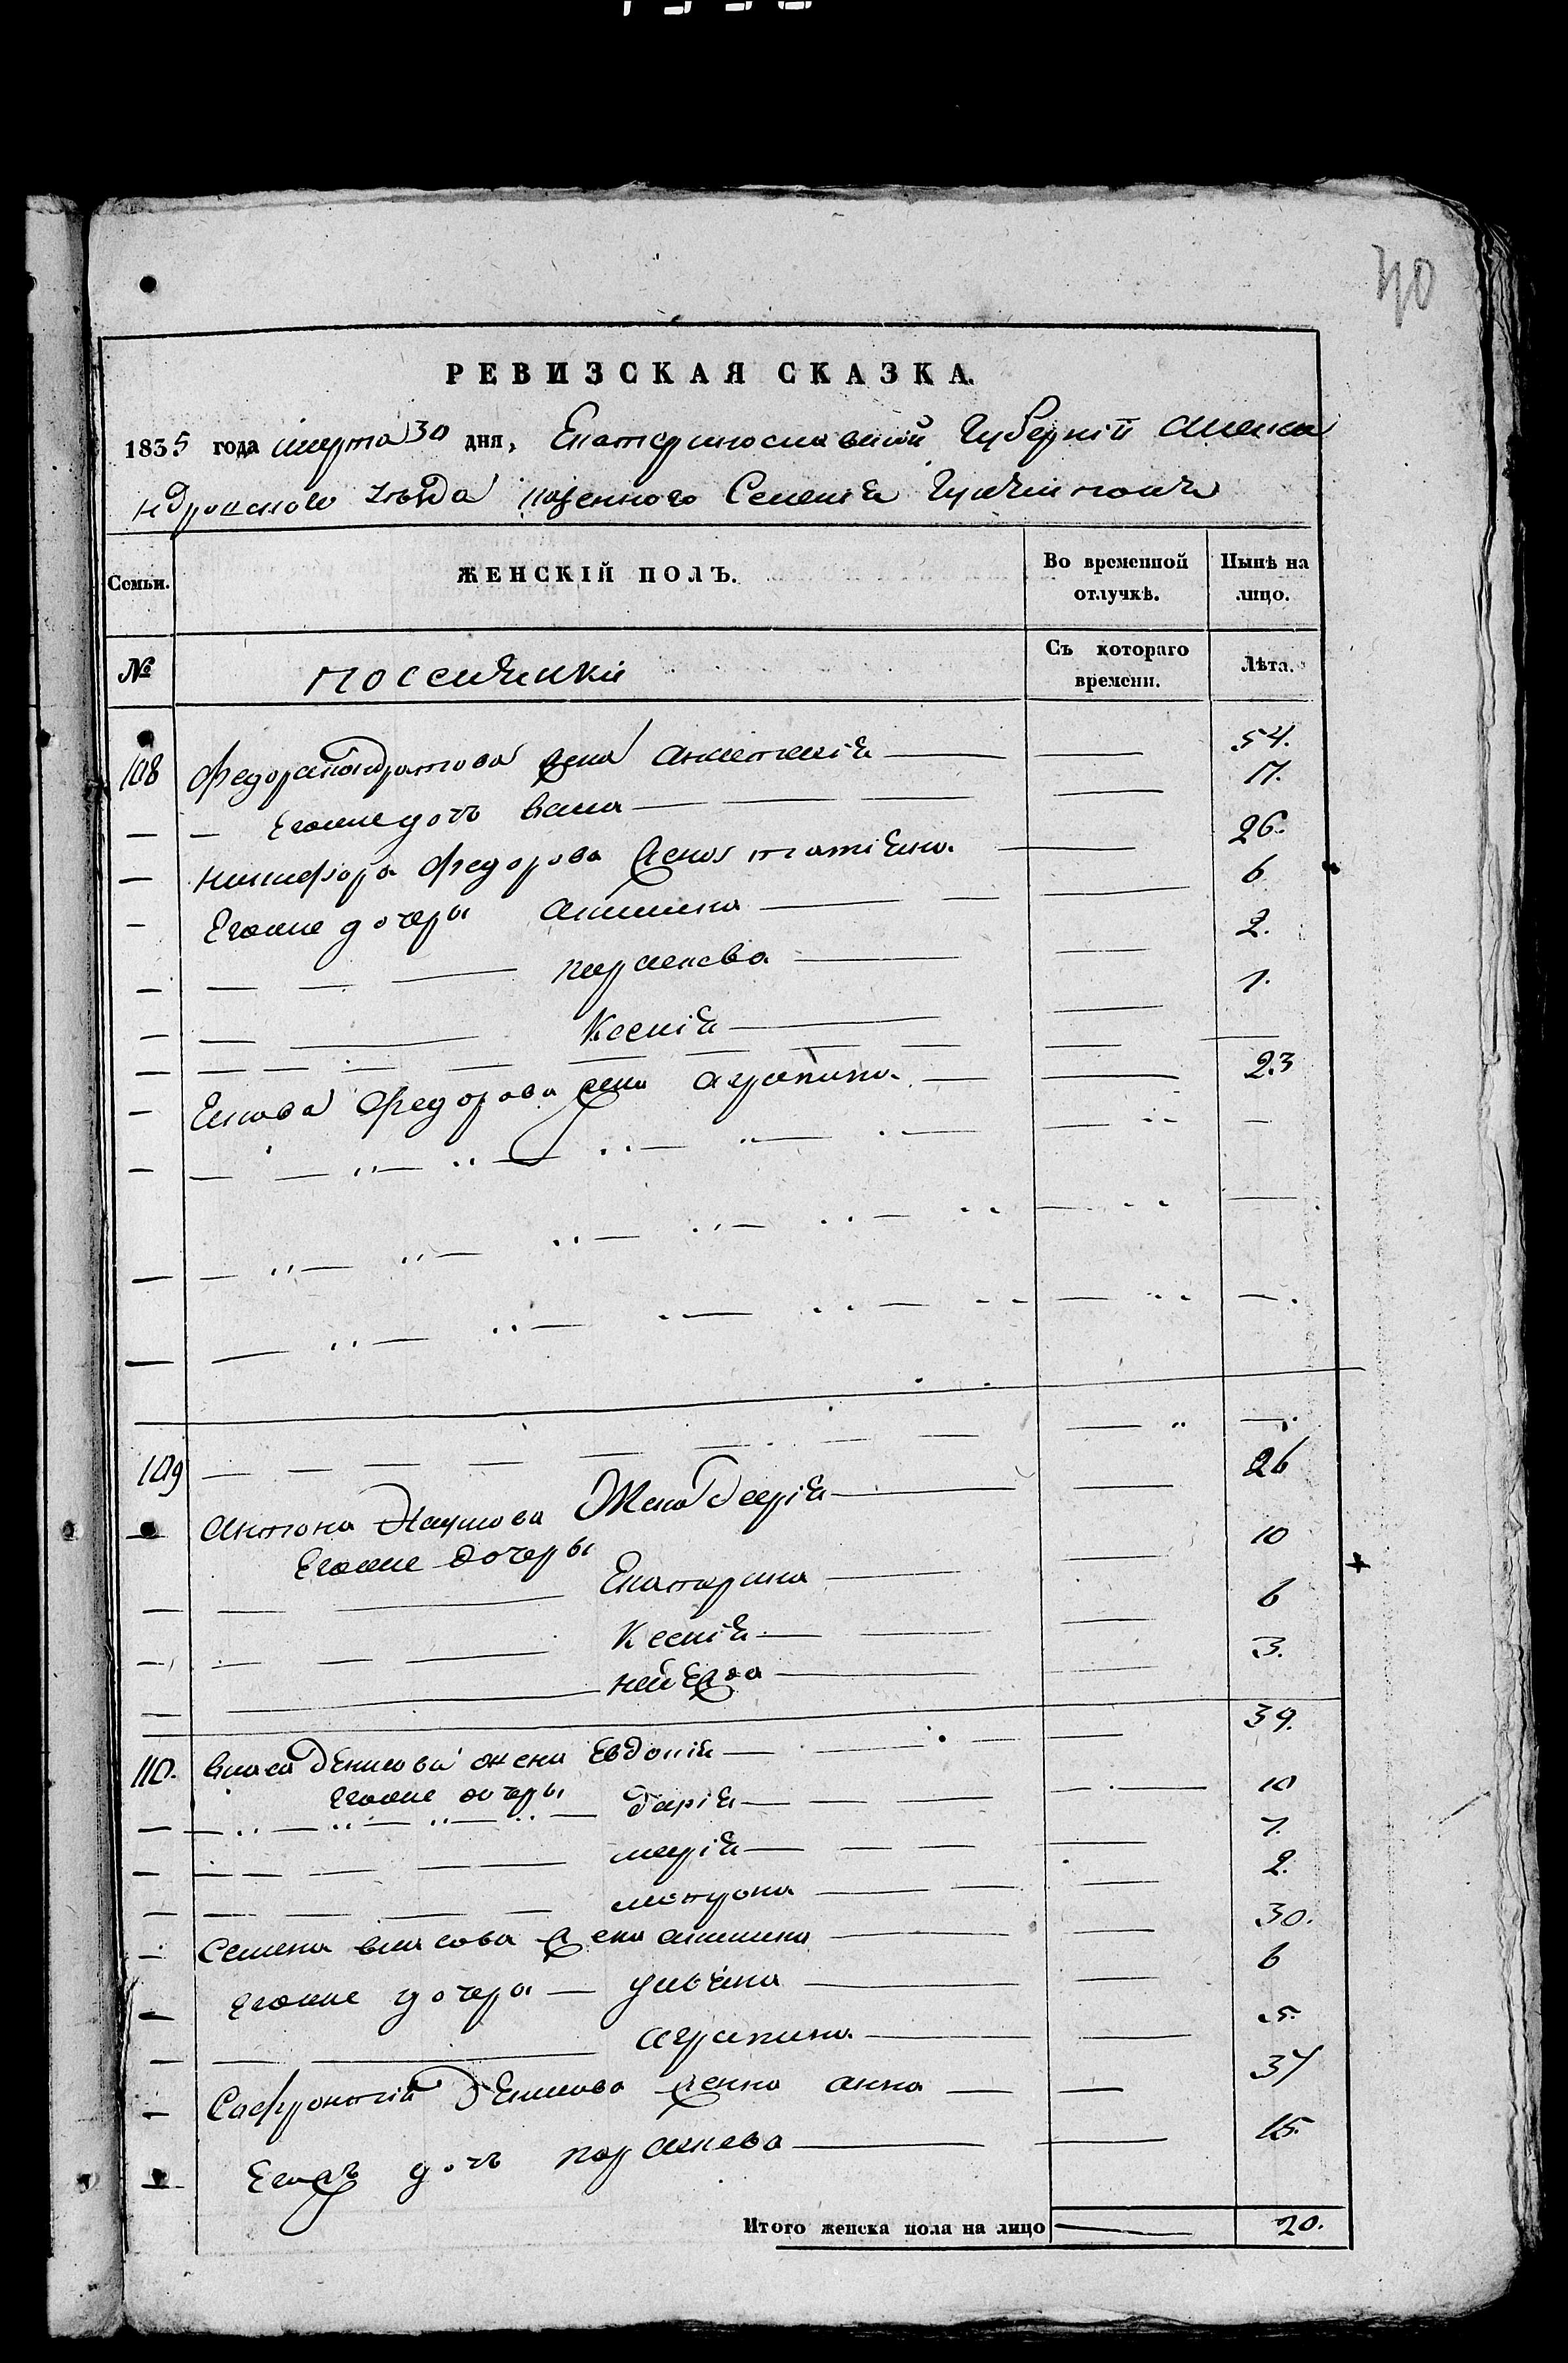 40
РЕВИЗСКАЯ СКАЗКА.
1835 года марта 30 дня, Екатеринославской Губерніи Алекса
ндровского уѣзда казенного Селенія
Семьи. ЖЕНСКІЙ ПОЛЪ. Во временной отлучкѣ. Нынѣ на лицо.
№ Съ котораго времени. Лѣта.
108 Федора Кондратова жена Анастасія 54.
Егоже дочь 17.
Никифора Федорова жена татіяна 26.
Егоже дочеры акилина 6
параскева 2.
Ксенія 1.
Якова Федорова жена агрипина 23
109
антона Наумова Жена Дарія 26
Егоже дочеры
Екатерина 10
Ксенія 6
3.
110. власа Денисова жена Евдокія 39.
Егоже дочеры дарія 10
марія 7.
мотрона 2.
Семена власова жена акилина 30.
Егоже дочеры ульяна 6
агрипина 5.
Софронтія Денисова женна анна 37
Егожъ дочь параскева 15.
Итого женска пола на лицо 20.